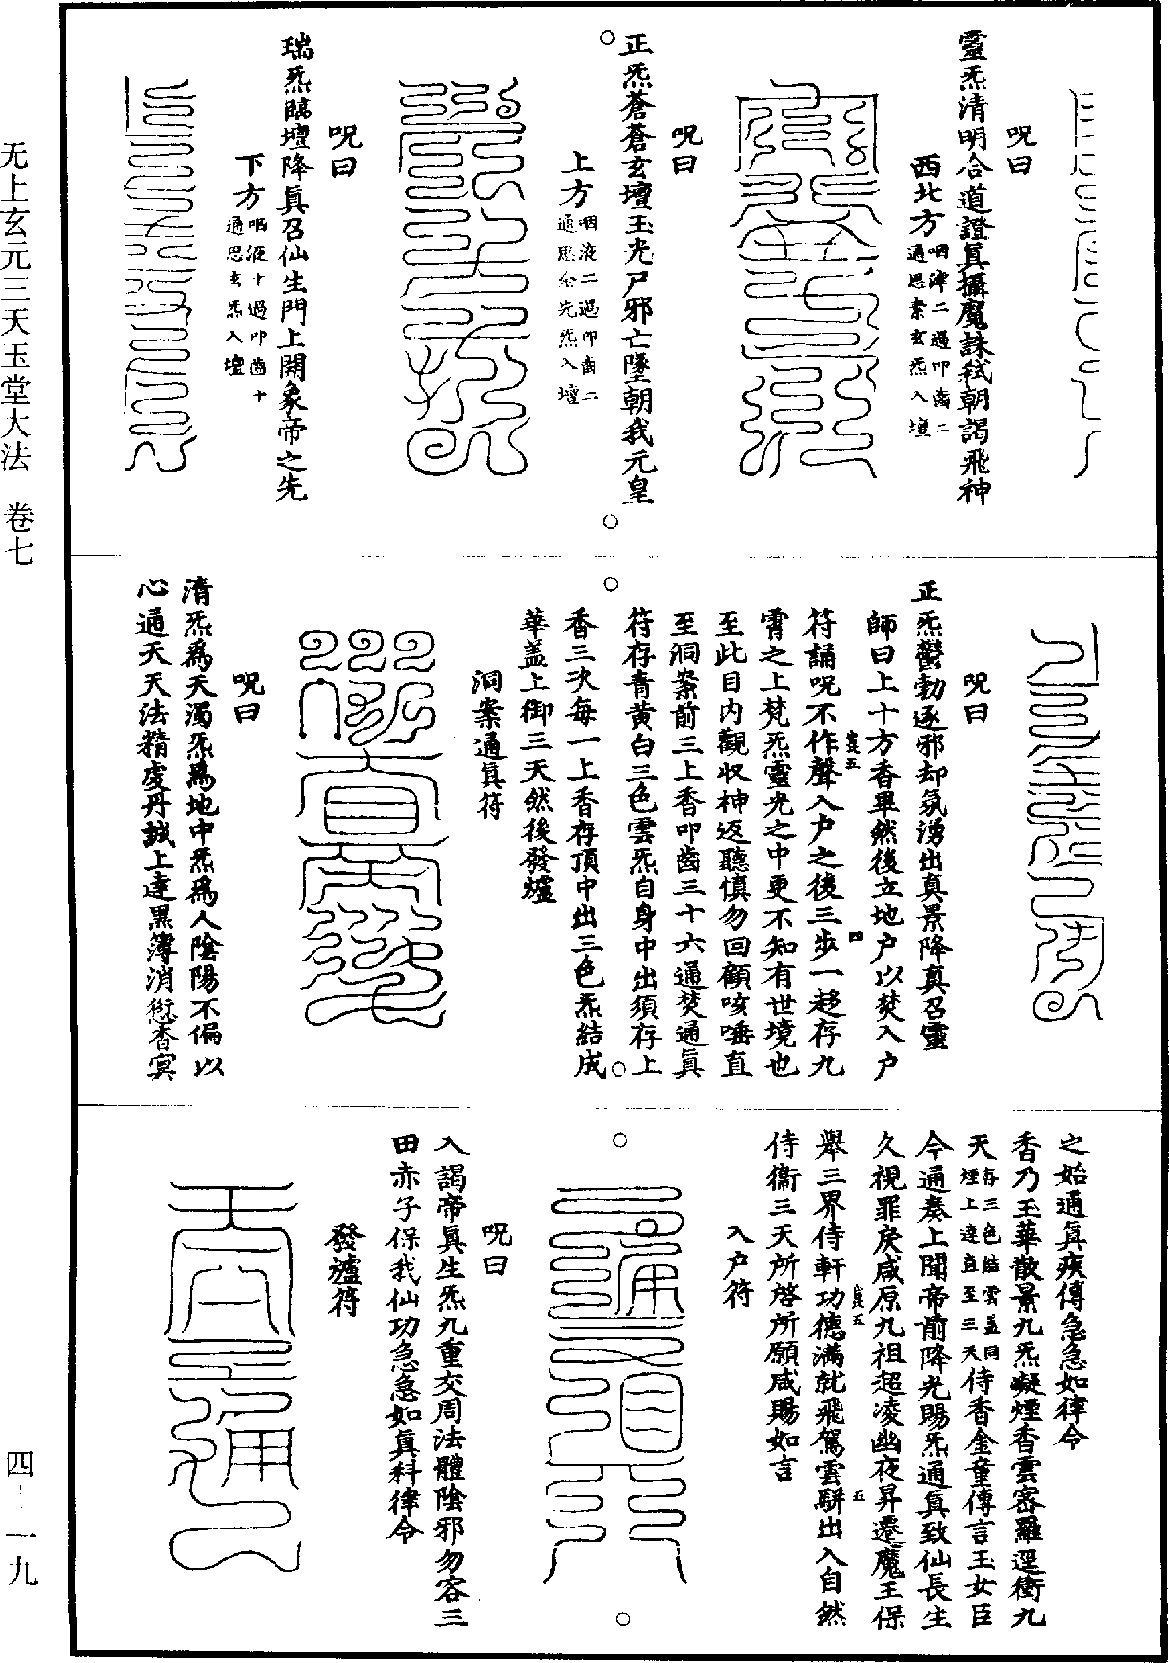 呪曰
靈炁清明合道證眞攝魔誅祆朝謁飛神
西北方咽津二過叩齒二
通思素玄炁入壇
呪曰
正炁蒼蒼玄壇玉光尸邪亡墜朝我元皇
上方咽液二過叩齒二
通思金光炁入壇
呪曰
瑞炁臨壇降眞召仙生門上開象帝之先
下方咽液十過叩齒十
通思玄炁入壇
呪曰
正炁鬱勃逐邪却氛湧出真景降真召靈
師曰上十方香畢然後立地户以焚入户
符誦呪不作聲入户之後三步一移存九
霄之上梵炁靈光之中更不知有世境也
至此目内觀收神返聽慎勿回顧咳唾直
至洞案前三上香叩齒三十六通焚通眞
符存青黄白三色雲炁自身中出須存上
香三次每一上香存頂中出三色炁結成
華蓋上御三天然後發爐
洞案通眞符
呪曰
清炁爲天濁炁爲地中炁爲人陰陽不偏以
心通天天法精虔丹誠上達黑簿消愆香冥
之始通眞疾傳急急如律令
香乃玉華散景九炁凝煙香雲密羅逕衝九
天存三色結雲蓋同
煙上達直至三天侍香金童傳言玉女臣
今通奏上聞帝前降光賜炁通眞致仙長生
久視罪戾咸原九祖超凌幽夜昇遷魔王保
舉三界侍軒功德滿就飛駕雲駢出入自然
侍衞三天所啓所願咸賜如言
入户符
呪曰
入謁帝眞生炁九重交周法體陰邪勿容三
田赤子保我仙功急急如眞科律令
發爐符
无上玄元三天玉堂大法　卷七
四-一九